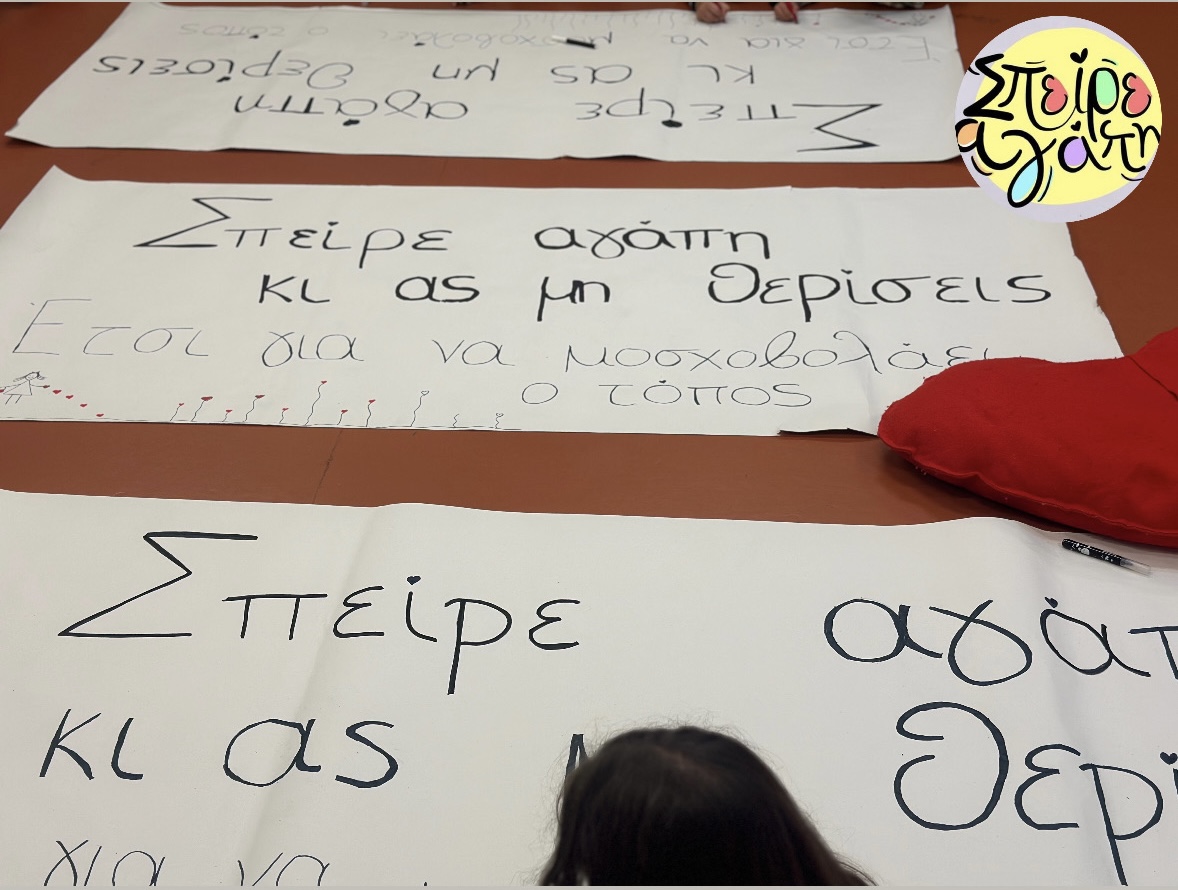 Σπείρε αγάπη
Σπείρε αγάπη
κι ας μη θερίσεις
Έτσι για να μοσχοβολάει ο τόπος
Σπείρε αγάπη
κι ας μη θερίσεις
Έτσι για να μοσχοβολάει
ο τόπος
Σπείρε αγάπ
κι ας θερί
για να